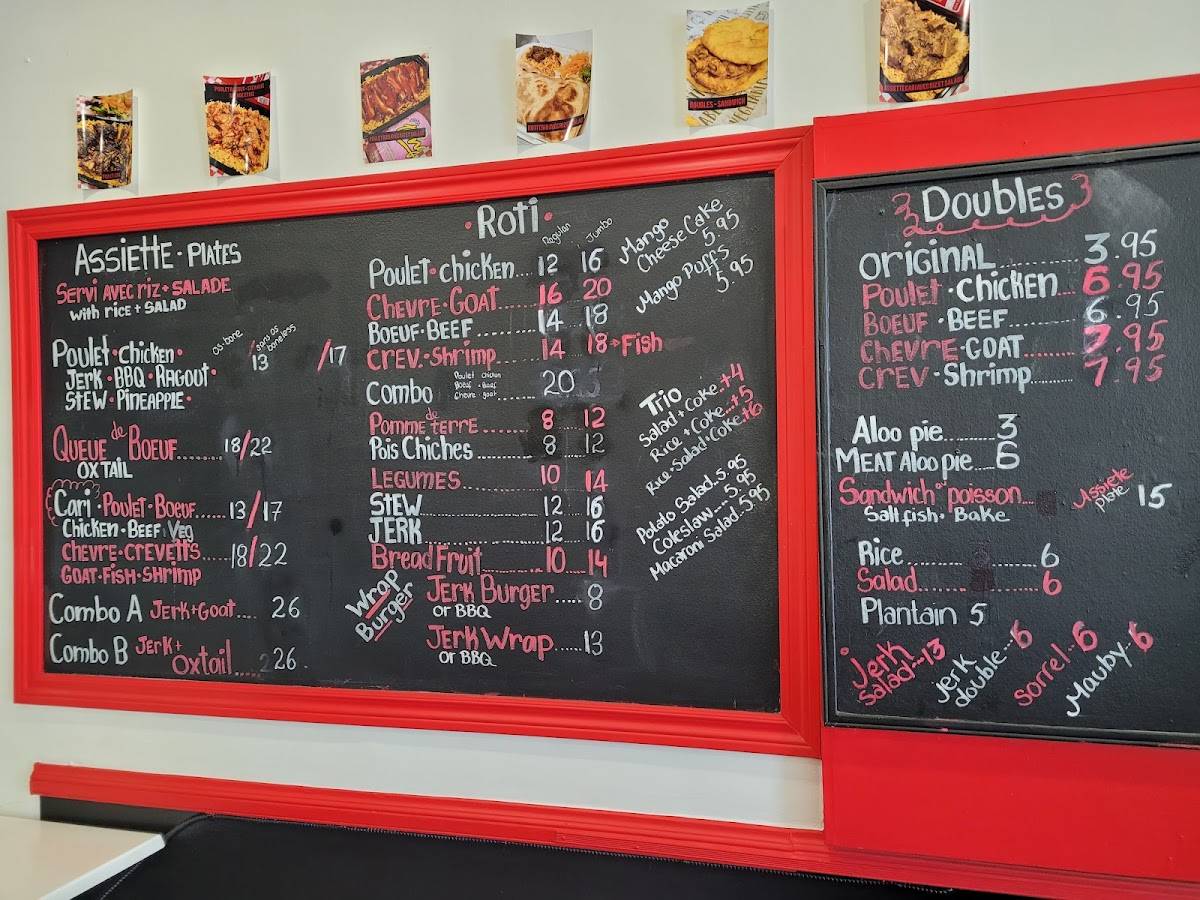 Assiette · Plates
Servi avec riz + salade
with rice + salad
os-bone
/ sans os
boneless
Poulet · Chicken · 13 /17
Jerk · BBQ · Ragout ·
Stew · Pineapple ·
Queue de Boeuf........ 18/22
Oxtail
Cari · Poulet · Boeuf...... 13/17
Chicken · Beef Veg
Chevre · Crevetts...... 18/22
Goat · Fish · Shrimp
Combo A Jerk + Goat.... 26
Combo B Jerk +
Oxtail..... 26
· Roti ·
Regular Jumbo
Poulet · chicken.... 12 16
Chevre · Goat........ 16 20
Boeuf · Beef........ 14 18
Crev · Shrimp....... 14 18 Fish
Combo Poulet Chicken 20
Boeuf · Beef
Chevre · goat......
Pomme de terre........ 8 12
Pois Chiches........ 8 12
Legumes........ 10 14
Stew........ 12 16
Jerk........ 12 16
Bread Fruit........ 10 14
Wrap
Burger
Jerk Burger..... 8
or BBQ
Jerk Wrap..... 13
or BBQ
Mango
Cheese Cake
5.95
Mango Puffs
5.95
Trio
Salad + Coke..+4
Rice + Coke...+5
Rice + Salad + Coke.+6
Potato Salad..5.95
Coleslaw....5.95
Macaroni Salad.5.95
Doubles
Original........ 3.95
Poulet · Chicken... 6.95
Boeuf · Beef........ 6.95
Chevre · Goat....... 7.95
Crev · Shrimp....... 7.95
Aloo pie........ 3
Meat Aloo pie.... 6
Sandwich au poisson.... Assiete
plate 15
Salt fish · Bake
Rice........ 6
Salad........ 6
Plantain 5
Jerk
Salad...13
jerk
double...6
sorrel..6
Mauby..6
DOUBLES - SANDWICH